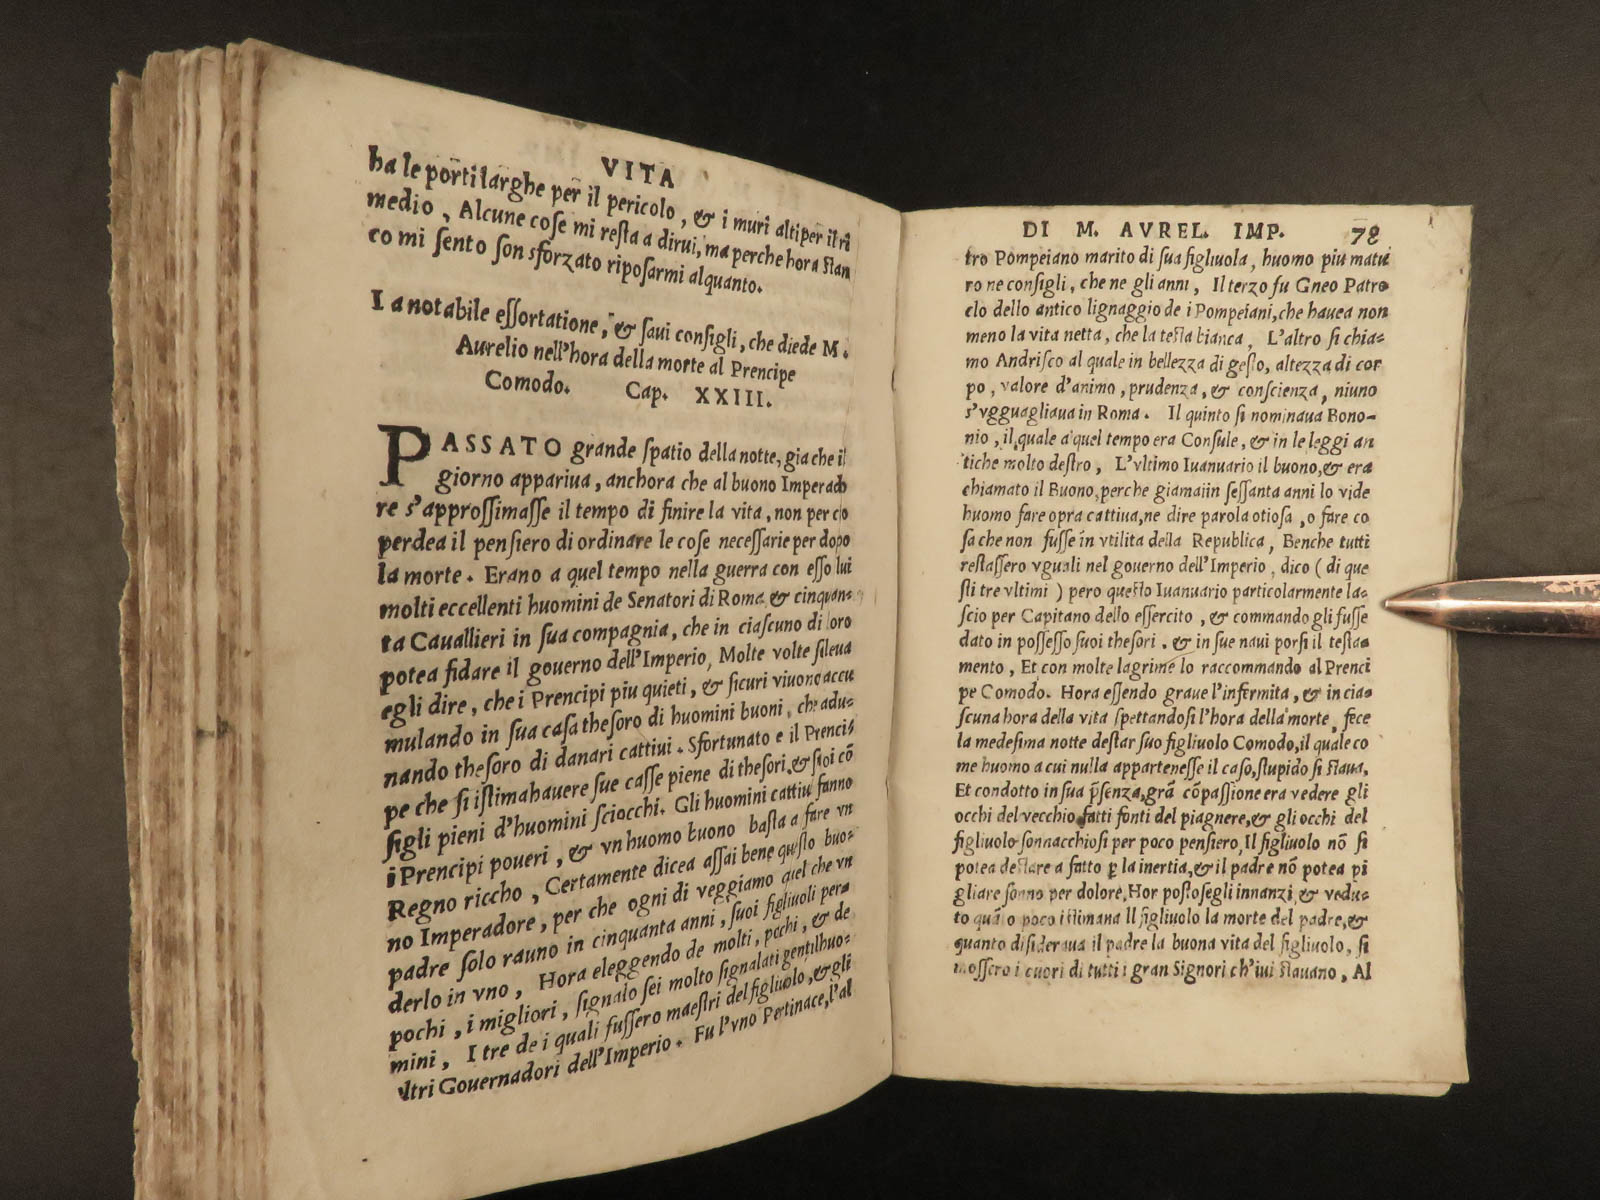 VITA
ha le porti larghe per il pericolo, & i muri alti per il ri
medio, Alcune cose mi resta a dirui, ma perche hora stan
co mi sento son sforzato riposarmi alquanto.
La notabile essortatione, & saui consigli, che diede M.
Aurelio nell'hora della morte al Prencipe
Comodo. Cap. XXIII.
PASSATO grande spatio della notte, gia che il
giorno appariua, anchora che al buono Imperado
re s'approssimasse il tempo di finire la vita, non per cio
perdea il pensiero di ordinare le cose necessarie per dopo
la morte. Erano a quel tempo nella guerra con esso lui
molti eccellenti huomini de Senatori di Roma & cinquan-
ta Cauallieri in sua compagnia, che in ciascuno di loro
potea fidare il gouerno dell'Imperio, Molte volte soleua
egli dire, che i Prencipi piu quieti, & sicuri viuono accu
mulando in sua casa thesoro di huomini buoni, che adu-
nando thesoro di danari cattiui. Sfortunato e il Prenci-
pe che si istima hauere sue casse piene di thesori, & suoi cō
sigli pieni d'huomini sciocchi. Gli huomini cattiui fanno
i Prencipi poueri, & vn huomo buono basta a fare vn
Regno riccho, Certamente dicea assai bene questo buo-
no Imperadore, per che ogni di veggiamo quel che vn
padre solo rauno in cinquanta anni, suoi figliuoli per-
derlo in vno, Hora eleggendo de molti, pochi, & de
pochi, i migliori, signalo sei molto signalati gentilhuo-
mini, I tre de i quali fussero maestri del figliuolo, & gli
altri Gouernadori dell'Imperio. Fu l'vno Pertinace, l'al
DI M. AVREL. IMP. 78
tro Pompeiano marito di sua figliuola, huomo piu matu
ro ne consigli, che ne gli anni, Il terzo fu Gneo Patro
clo dello antico lignaggio de i Pompeiani, che hauea non
meno la vita netta, che la testa bianca, L'altro si chia-
mo Andrisco al quale in bellezza di gesto, altezza di cor
po, valore d'animo, prudenza, & conscienza, niuno
s'vgguagliaua in Roma. Il quinto si nominaua Bono-
nio, il quale a quel tempo era Consule, & in le leggi an
tiche molto destro, L'vltimo Iuanuario il buono, & era
chiamato il Buono, perche giamai in sessanta anni lo vide
huomo fare opra cattiua, ne dire parola otiosa, o fare co
sa che non fusse in vtilita della Republica, Benche tutti
restassero vguali nel gouerno dell'Imperio, dico (di que
sti tre vltimi) pero questo Iuanuario particolarmente la-
scio per Capitano dello essercito, & commando gli fusse
dato in possesso suoi thesori. & in sue naui porsi il testa-
mento, Et con molte lagrime lo raccommando al Prenci
pe Comodo. Hora essendo graue l'infermita, & in cia-
scuna hora della vita spettandosi l'hora della morte, fece
la medesima notte destar suo figliuolo Comodo, il quale co
me huomo a cui nulla appartenesse il caso, stupido si staua.
Et condotto in sua p̄senza, grā cōpassione era vedere gli
occhi del vecchio fatti fonti del piagnere, & gli occhi del
figliuolo sonnacchiosi per poco pensiero, Il figliuolo nō si
potea destare a fatto ꝑ la inertia, & il padre nō potea pi
gliare sonno per dolore, Hor postosegli innanzi, & vedu-
to quāto poco istimana Il figliuolo la morte del padre, &
quanto disideraua il padre la buona vita del figliuolo, si
mossero i cuori di tutti i gran Signori ch'iui stauano, Al